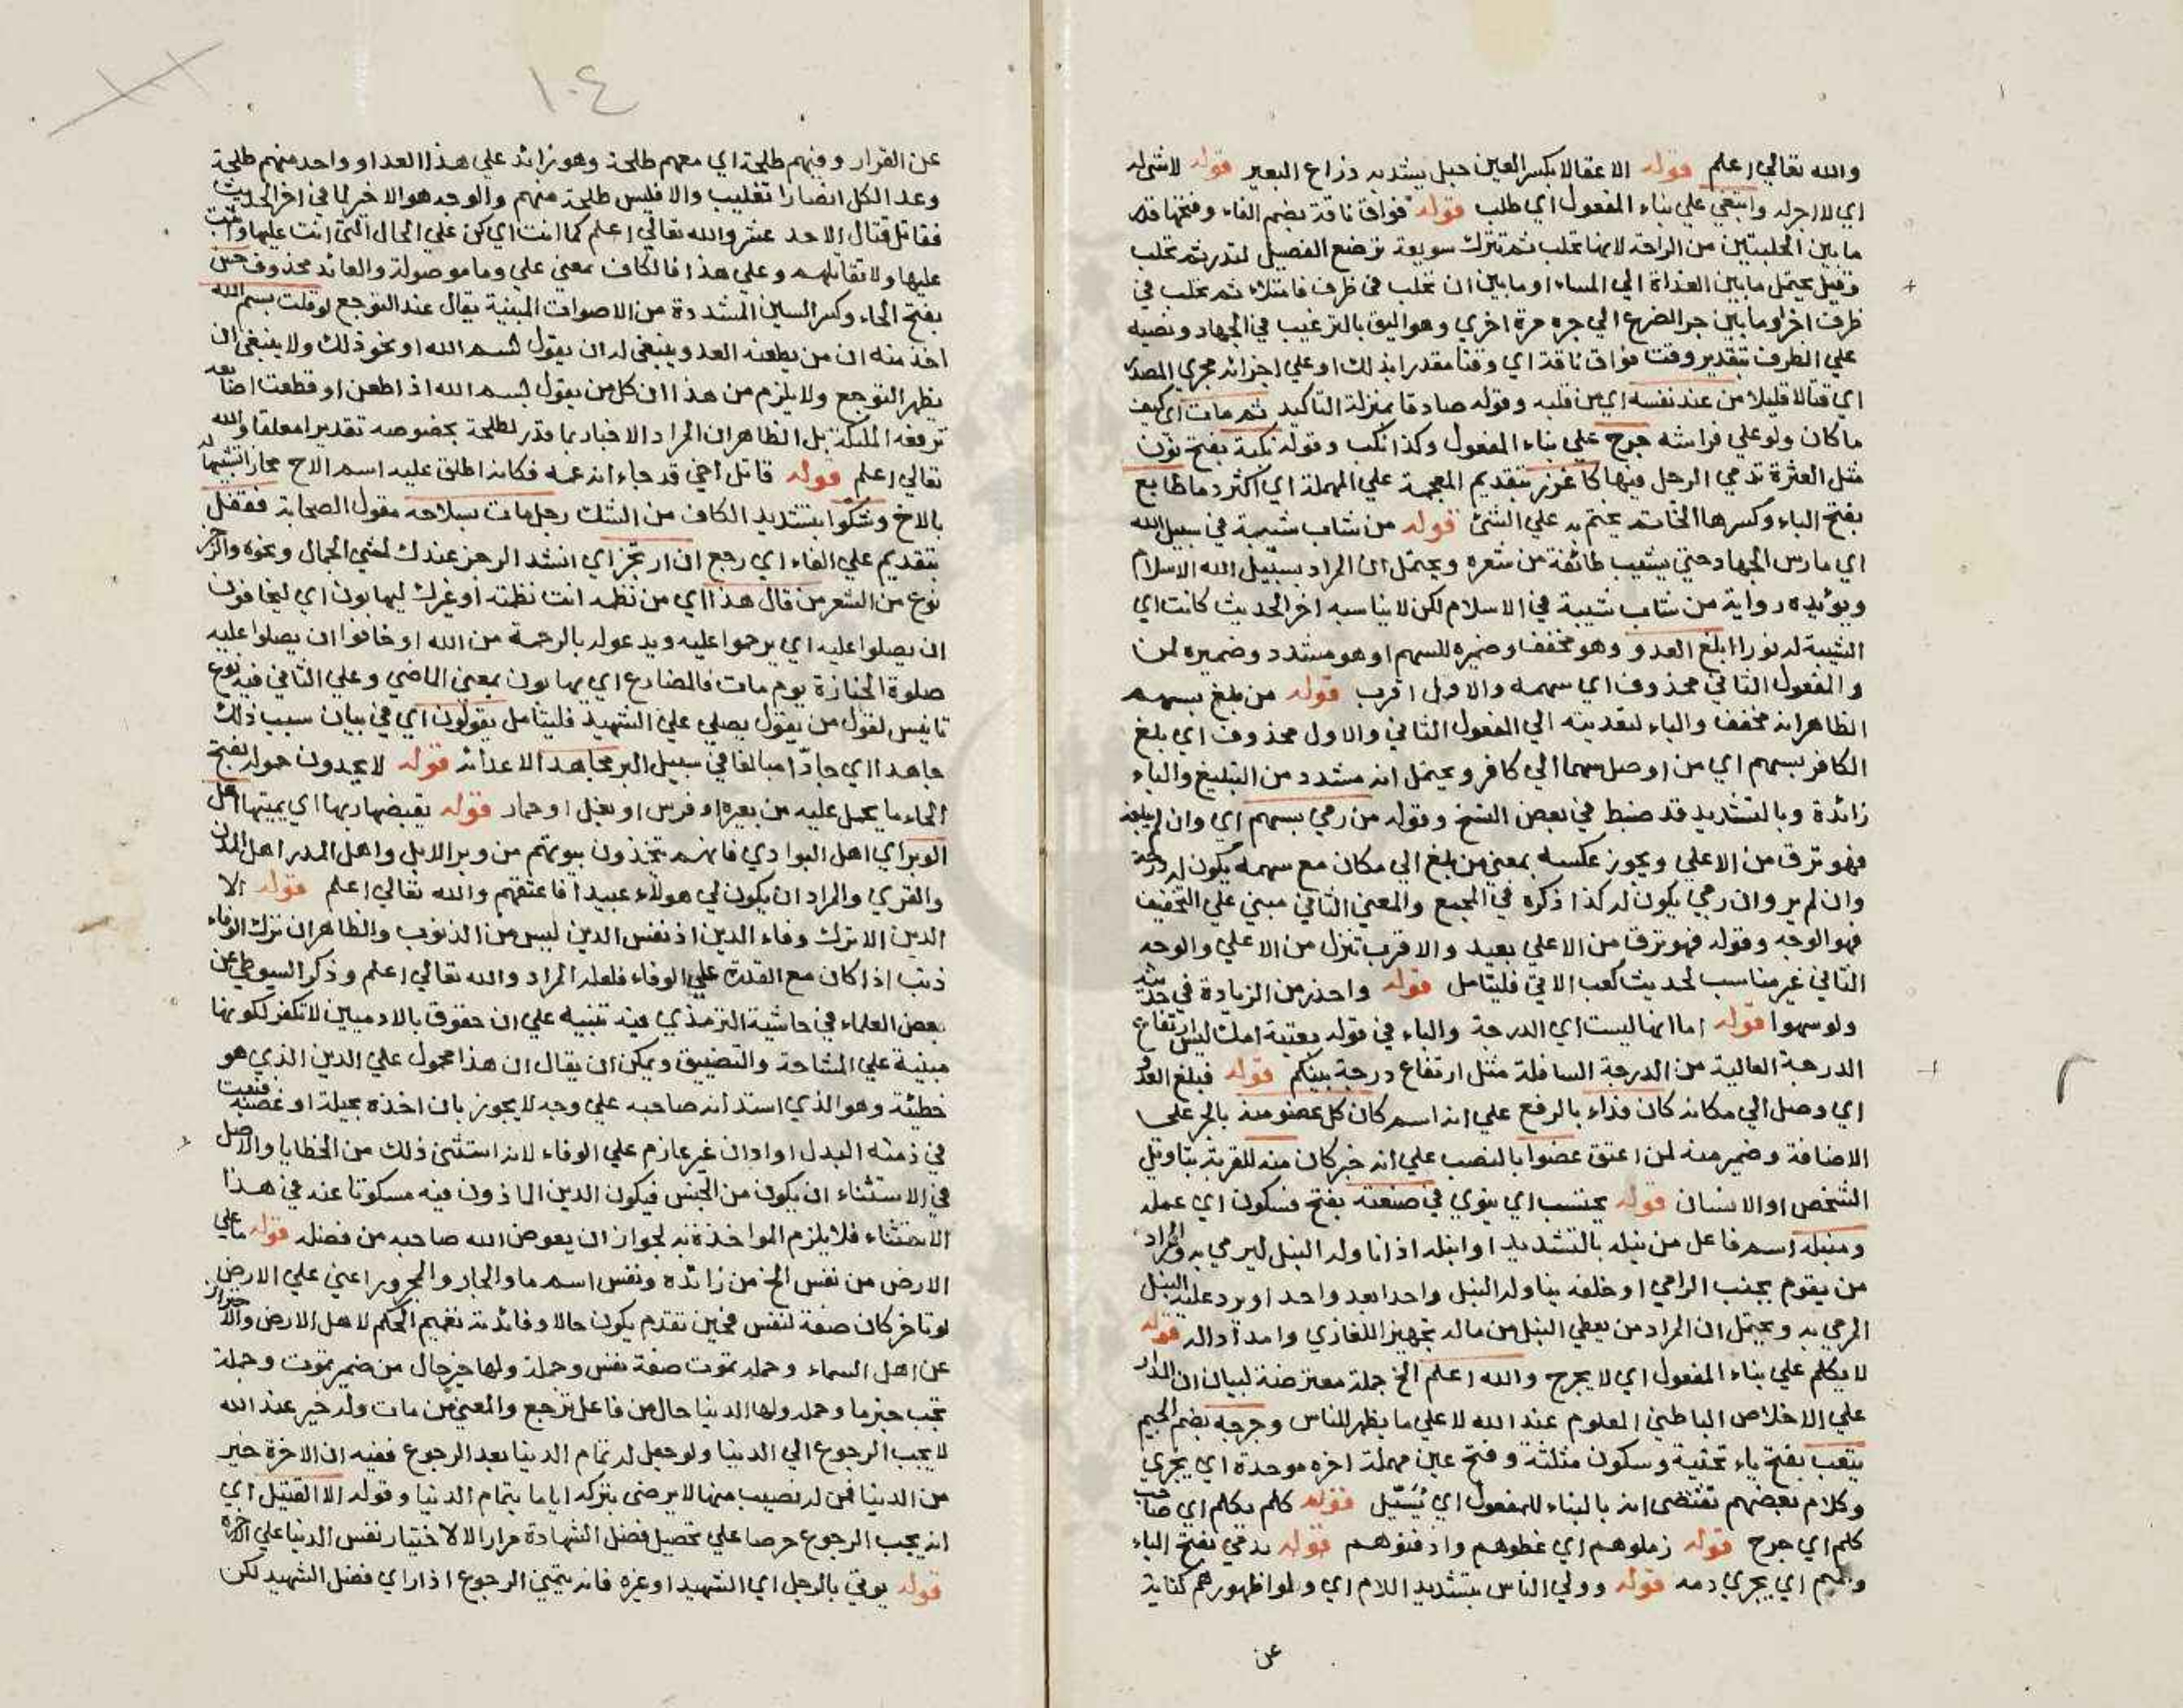 والله تعالي اعلم قوله الاعقالا بكسر العين حبل يشد به ذراع البعير قوله لا شي له
اي لا اجر له وابتغي علي بناء المفعول اي طلب قوله فواق ناقة بضم الفاء وفتحها قدر
ما بين الحلبتين من الراحة لانها تحلب ثم تترك سويعة ترضع الفصيل لتدر ثم تحلب
وقيل يحتمل ما بين الغداة الي المساء او ما بين ان تحلب في ظرف فامتلاء ثم تحلب في
ظرف اخر او ما بين جر الضرع الي جره مرة اخري وهو اليق بالترغيب في الجهاد ونصبه
علي الظرف بتقدير وقت فواق ناقة اي وقتا مقدرا بذلك او علي اجرائه مجري المصدر
اي قتالا قليلا من عند نفسه اي من قلبه وقوله صادقا بمنزلة التاكيد ثم مات اي كيف
ما كان ولو علي فراشه جرح علي بناء المفعول وكذا نكب وقوله نكبة بفتح نون
مثل العثرة تدمي الرجل فيها كاغزر بتقديم المعجمة علي المهملة اي اكثر دما طابع
بفتح الباء وكسرها الخاتم يختم به علي الشئ قوله من شاب شيبة في سبيل الله
اي مارس الجهاد حتي يشيب طائفة من شعره ويحتمل ان المراد بسبيل الله الاسلام
ويؤيده رواية من شاب شيبة في الاسلام لكن لا يناسبه اخر الحديث كانت اي
الشيبة له نورا ابلغ العدو وهو مخفف وضميره للسهم او هو مشدد وضميره لمن
والمفعول الثاني محذوف اي سهمه والاول اقرب قوله من بلغ بسهم
الظاهر انه مخفف والباء لتعديته الي المفعول الثاني والاول محذوف اي بلغ
الكافر بسهم اي من اوصل سهما الي كافر ويحتمل انه مشدد من التبليغ والباء
زائدة وبالتشديد قد ضبط في بعض النسخ وقوله من رمي بسهم اي وان لم يبلغه
فهو ترق من الاعلي ويجوز عكسه بمعني من بلغ الي مكان مع سهمه يكون له درجة
وان لم يرم وان رمي يكون له كذا ذكره في المجمع والمعني الثاني مبني علي التخفيف
فهو الوجه وقوله فهو ترق من الاعلي بعيد والاقرب تنزل من الاعلي والوجه
الثاني غير مناسب لحديث كعب الاتي فليتامل قوله واحذر من الزيادة في حديثه
ولو سهوا قوله اما انها ليست اي الدرجة والباء في قوله بعتبة امك ليس ارتفاع
الدرجة العالية من الدرجة السافلة مثل ارتفاع درجة بيتكم قوله فبلغ العدو
اي وصل الي مكانه كان فداء بالرفع علي انه اسم كان كل عضو منه بالجر علي
الاضافة وضمير منه لمن اعتق عضوا بالنصب علي انه خبر كان منه للقربة بتاويل
الشخص او الانسان قوله يحتسب اي ينوي في صنعته بفتح فسكون اي عمله
ومنبله اسم فاعل من نبله بالتشديد او انبله اذا ناوله النبل ليرمي به والمراد
من يقوم بجنب الرامي او خلفه يناوله النبل واحدا بعد واحد او يرد عليه النبل
المرمي به ويحتمل ان المراد من يعطي النبل من ماله تجهيزا للغازي وامدادا له قوله
لا يكلم علي بناء المفعول اي لا يجرح والله اعلم الخ جملة معترضة لبيان ان المدار
علي الاخلاص الباطني المعلوم عند الله لا علي ما يظهر للناس وجرحه بضم الجيم
يثعب بفتح ياء تحتية وسكون مثلثة وفتح عين مهملة اخره موحدة اي يجري
وكلام بعضهم تقتضي انه بالبناء للمفعول اي يُسَيّل قوله كلم يكلم اي صاحب
كلم اي جرح قوله زملوهم اي غطوهم وادفنوهم قوله يدمي بفتح الياء
والميم اي يجري دمه قوله وولي الناس بتشديد اللام اي ولوا ظهورهم كناية
عن
١٠٤
عن الفرار وفيهم طلحة اي معهم طلحة وهو زائد علي هذا العدد او واحد منهم طلحة
وعد الكل انصارا تغليب والا فليس طلحة منهم والوجه هو الاخر لما في اخر الحديث
فقاتل قتال الاحد عشر والله تعالي اعلم كما انت اي كن علي الحال التي انت عليها واثبت
عليها ولا تقاتلهم وعلي هذا فالكاف بمعني علي وما موصولة والعائد محذوف حس
بفتح الحاء وكسر السين المشددة من الاصوات المبنية يقال عند التوجع لو قلت بسم الله
اخذ منه ان من يطعنه العدو ينبغي له ان يقول بسم الله او نحو ذلك ولا ينبغي ان
يظهر التوجع ولا يلزم من هذا ان كل من يقول بسم الله اذا طعن او قطعت اصابعه
ترفعه الملئكة بل الظاهر ان المراد الاخبار بما قدر لطلحة بخصوصه تقديرا معلقا والله
تعالي اعلم قوله قاتل اخي قد جاء انه عمه فكانه اطلق عليه اسم الاخ مجازا تشبيها له
بالاخ وشكوا بتشديد الكاف من الشك رجل مات بسلاحه مقول الصحابة فقفل
بتقديم علي الفاء اي رجع ان ارتجز اي انشد الرجز عندك لمشي الجمال ونحوه والرجز
نوع من الشعر من قال هذا اي من نظمه انت نظمته او غيرك ليهابون اي ليخافون
ان يصلوا عليه اي يرحموا عليه ويدعو له بالرحمة من الله او خافوا ان يصلوا عليه
صلوة الجنازة يوم مات فالمضارع اي يهابون بمعني الماضي وعلي الثاني فيه نوع
تانيس لقول من يقول يصلي علي الشهيد فليتامل يقولون اي في بيان سبب ذلك
جاهدا اي جادّا مبالغا في سبيل البر مجاهدا لاعدائه قوله لا يجدون حمولة بفتح
الحاء ما يحمل عليه من بعير او فرس او بغل او حمار قوله يقبضها ربها اي يميتها اهل
الوبر اي اهل البوادي فانهم يتخذون بيوتهم من وبر الابل واهل المدر اهل المدن
والقري والمراد ان يكون لي هولاء عبيدا فاعتقهم والله تعالي اعلم قوله الا
الدين الا ترك وفاء الدين اذ نفس الدين ليس من الذنوب والظاهر ان ترك الوفاء
ذنب اذا كان مع القدرة علي الوفاء فلعله المراد والله تعالي اعلم وذكر السيوطي عن
بعض العلماء في حاشية الترمذي فيه تنبيه علي ان حقوق بالادميين لا تكفر لكونها
مبنية علي المشاحة والتضييق ويمكن ان يقال ان هذا محمول علي الدين الذي هو
خطيئة وهو الذي استدانه صاحبه علي وجه لا يجوز بان اخذه بحيلة او غصبه فثبت
في ذمته البدل او ادان غير عازم علي الوفاء لانه استثني ذلك من الخطايا والاصل
في الاستثناء ان يكون من الجنس فيكون الدين الماذون فيه مسكوتا عنه في هذا
الاستثناء فلا يلزم المواخذة به لجواز ان يعوض الله صاحبه من فضله قوله ما علي
الارض من نفس الخ من زائدة ونفس اسم ما والجار والمجرور اعني علي الارض
لو تاخر كان صفة لنفس فحين تقدم يكون حالا وفائدته تعميم الحكم لاهل الارض والاحتراز
عن اهل السماء وجملة تموت صفة نفس وجملة ولها خير حال من ضمير تموت وجملة
تحب خبر ما وجملة ولها الدنيا حال من فاعل ترجع والمعني من مات وله خير عند الله
لا يحب الرجوع الي الدنيا ولو جعل له تمام الدنيا بعد الرجوع ففيه ان الاخرة خير
من الدنيا فمن له نصيب منها لا يرضي بتركه اياما بتمام الدنيا وقوله الا القتيل اي
انه يحب الرجوع حرصا علي تحصيل فضل الشهادة مرارا لا لاختيار نفس الدنيا علي الاخرة
قوله يوتي بالرجل اي الشهيد او غيره فانه يتمني الرجوع اذا راي فضل الشهيد لكن